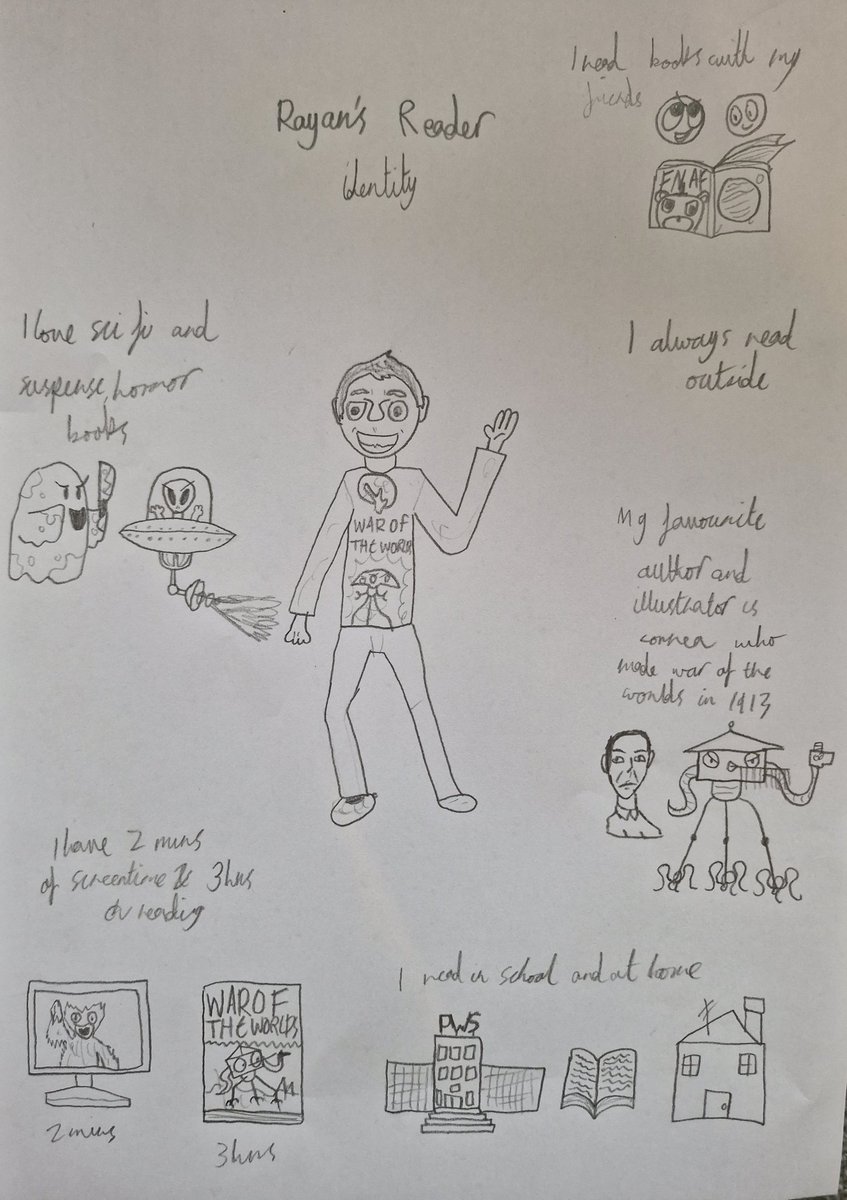 Rayan's Reader
identity
I read books with my
friends
FNAF
I love sci fi and
suspense, horror
books
I always read
outside
WAR OF
THE WORLD
My favourite
author and
illustrator is
correa who
made war of the
worlds in 1913
I have 2 mins
of screentime & 3hrs
of reading
I read in school and at home
WAR OF
THE WORLDS
PWS
2 mins
3hrs